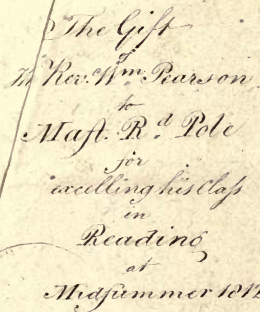 The Gift
of
The Rev. Wm. Pearson
to
Maſt. Rd. Pole
for
excelling his Claſs
in
Reading
at
Midſummer 1812